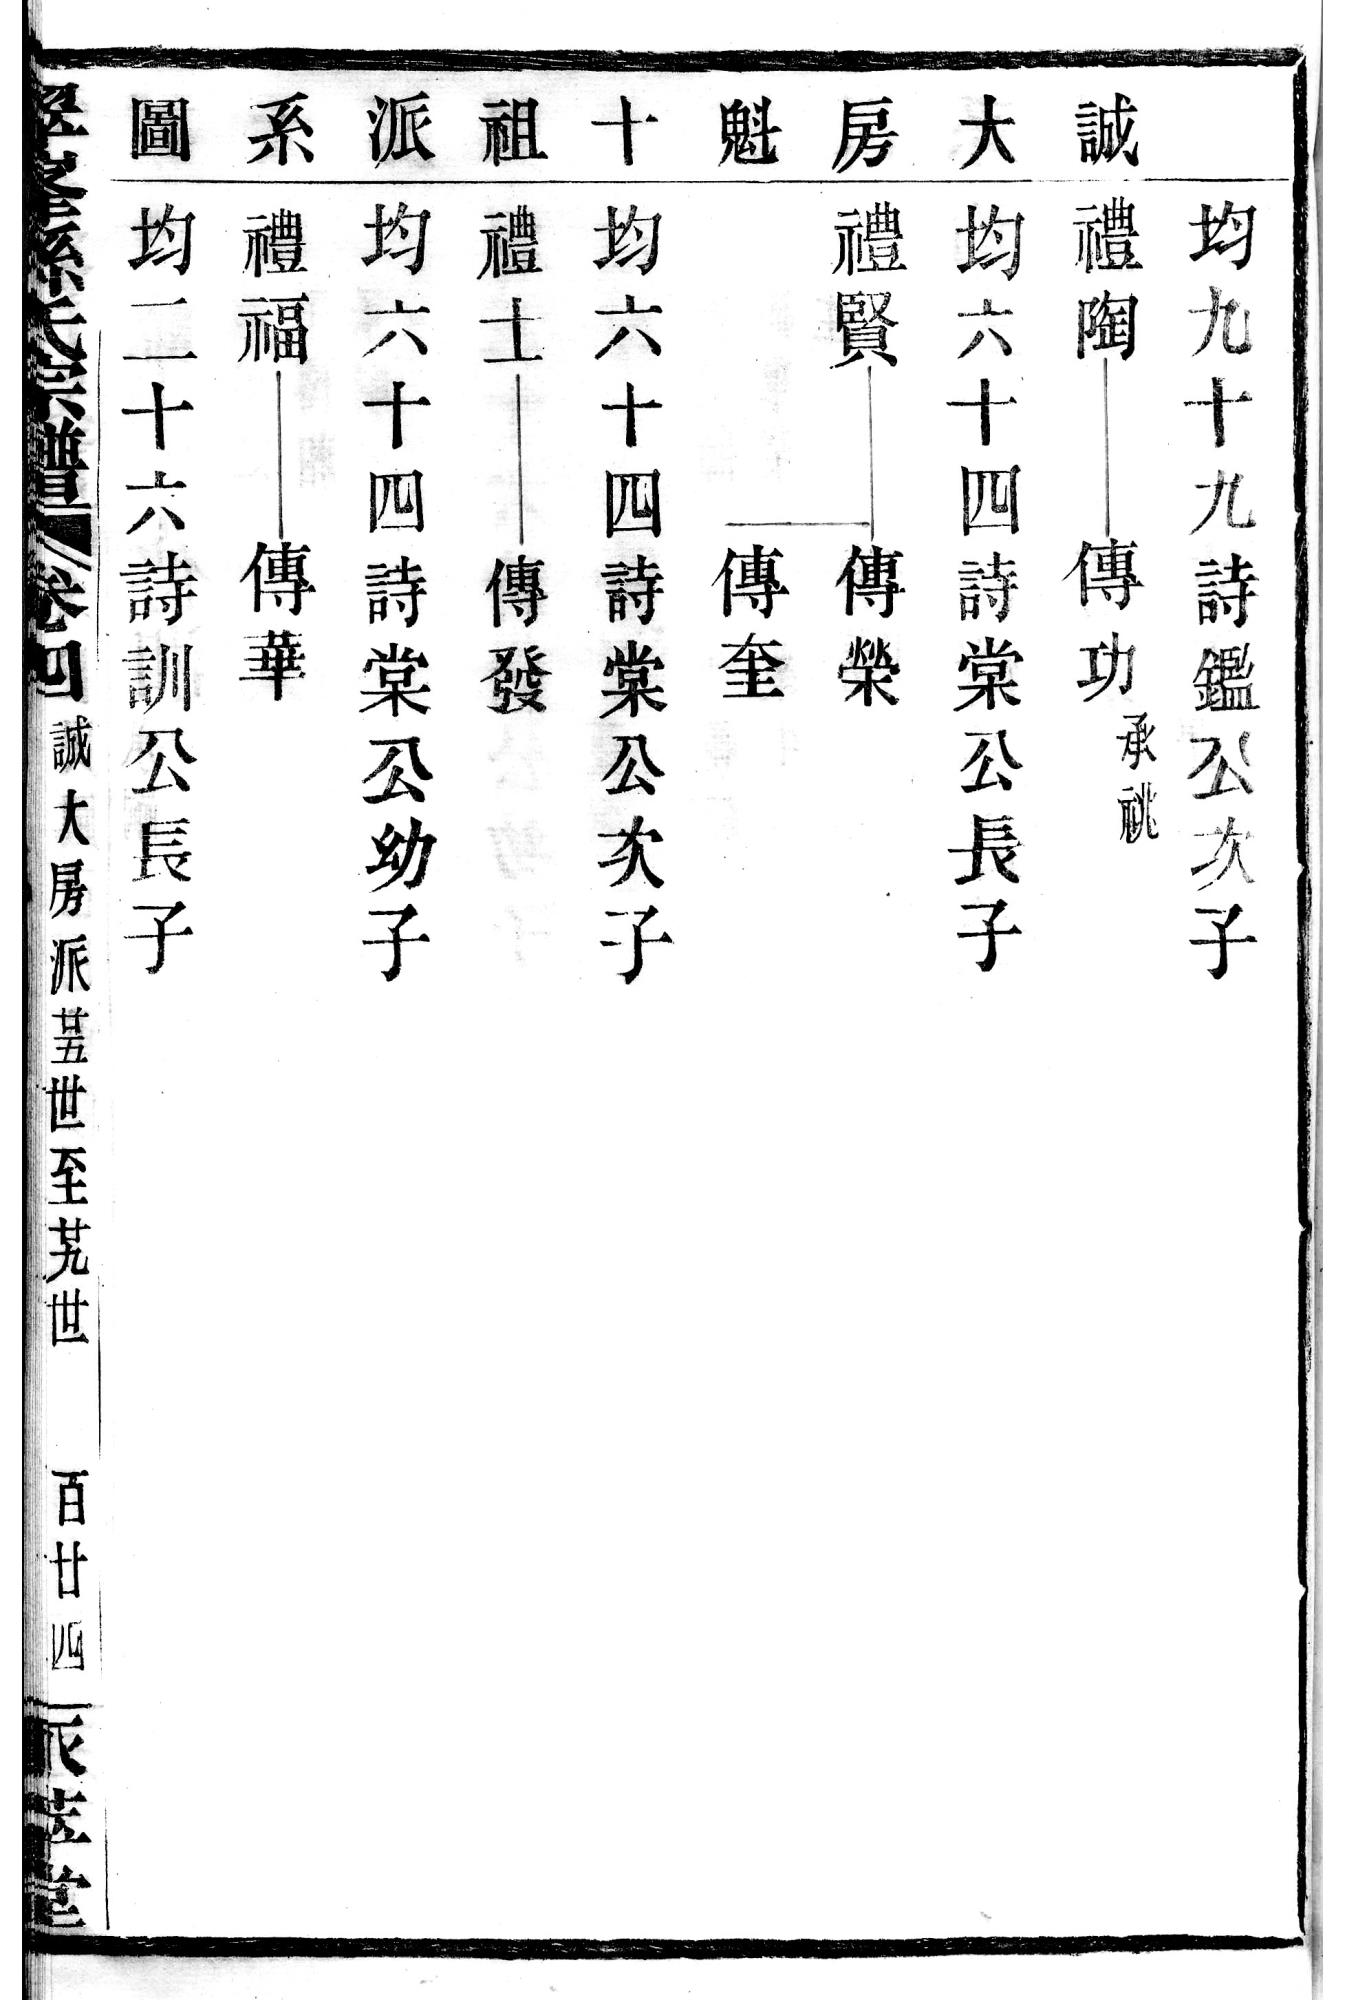 誠大房魁十祖派系圖
均九十九詩鑑公次子
禮陶 傳功 承祧
均六十四詩棠公長子
禮賢 傳榮
傳奎
均六十四詩棠公次子
禮士 傳發
均六十四詩棠公幼子
禮福 傳華
均二十六詩訓公長子
孫氏宗譜 卷四 誠大房派廿五世至廿九世 百廿四 堂